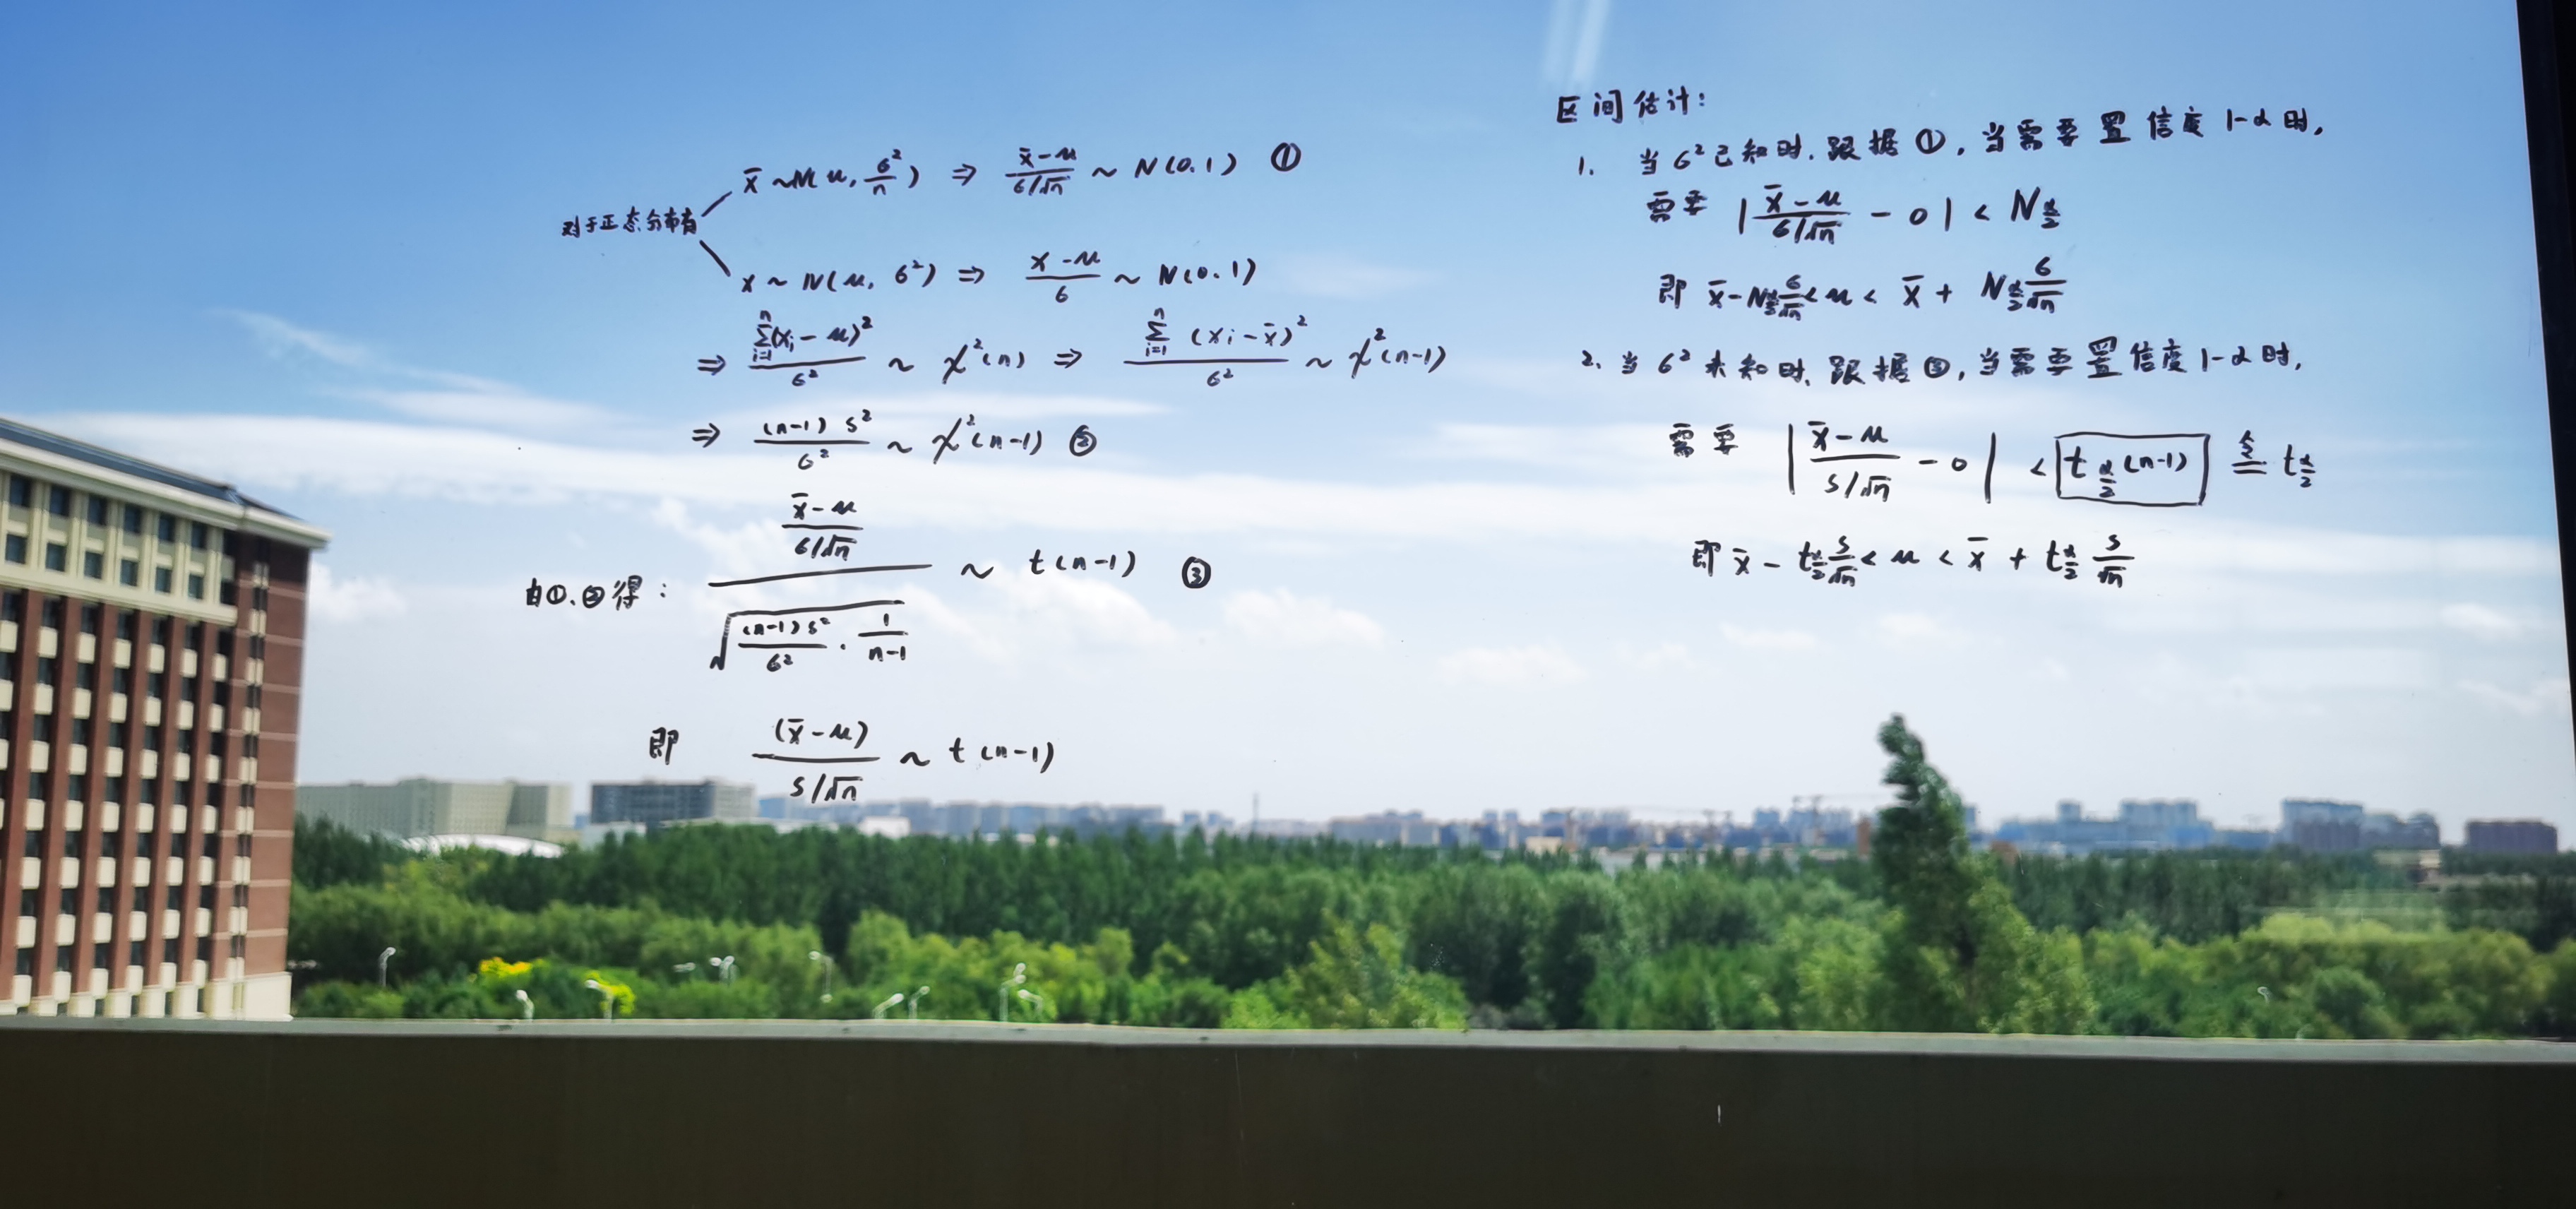 对于正态分布有
x̄ ~ N(μ, σ²/n) ⇒ (x̄-μ)/(σ/√n) ~ N(0.1) ①
x ~ N(μ, σ²) ⇒ (x-μ)/σ ~ N(0.1)
⇒ Σⁿᵢ₌₁(xᵢ-μ)²/σ² ~ χ²(n) ⇒ Σⁿᵢ₌₁(xᵢ-x̄)²/σ² ~ χ²(n-1)
⇒ (n-1)s²/σ² ~ χ²(n-1) ②
由①.②得: ((x̄-μ)/(σ/√n))/√((n-1)s²/σ² · 1/(n-1)) ~ t(n-1) ③
即 (x̄-μ)/(s/√n) ~ t(n-1)
区间估计:
1. 当σ²已知时.跟据①,当需要置信度1-α时,
需要 |(x̄-μ)/(σ/√n) - 0| < N_{α/2}
即 x̄-N_{α/2}σ/√n < μ < x̄ + N_{α/2}σ/√n
2. 当σ²未知时.跟据③,当需要置信度1-α时,
需要 |(x̄-μ)/(s/√n) - 0| < t_{α/2}(n-1) ≜ t_{α/2}
即 x̄ - t_{α/2}s/√n < μ < x̄ + t_{α/2} s/√n